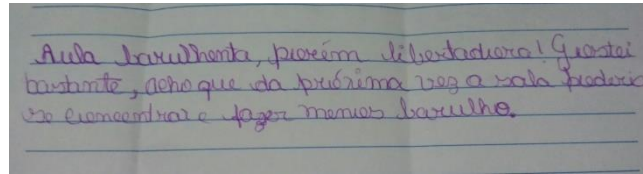 Aula barulhenta, porém libertadora! Gostei
bastante, acho que da próxima vez a sala poderia
se concentrar e fazer menos barulho.